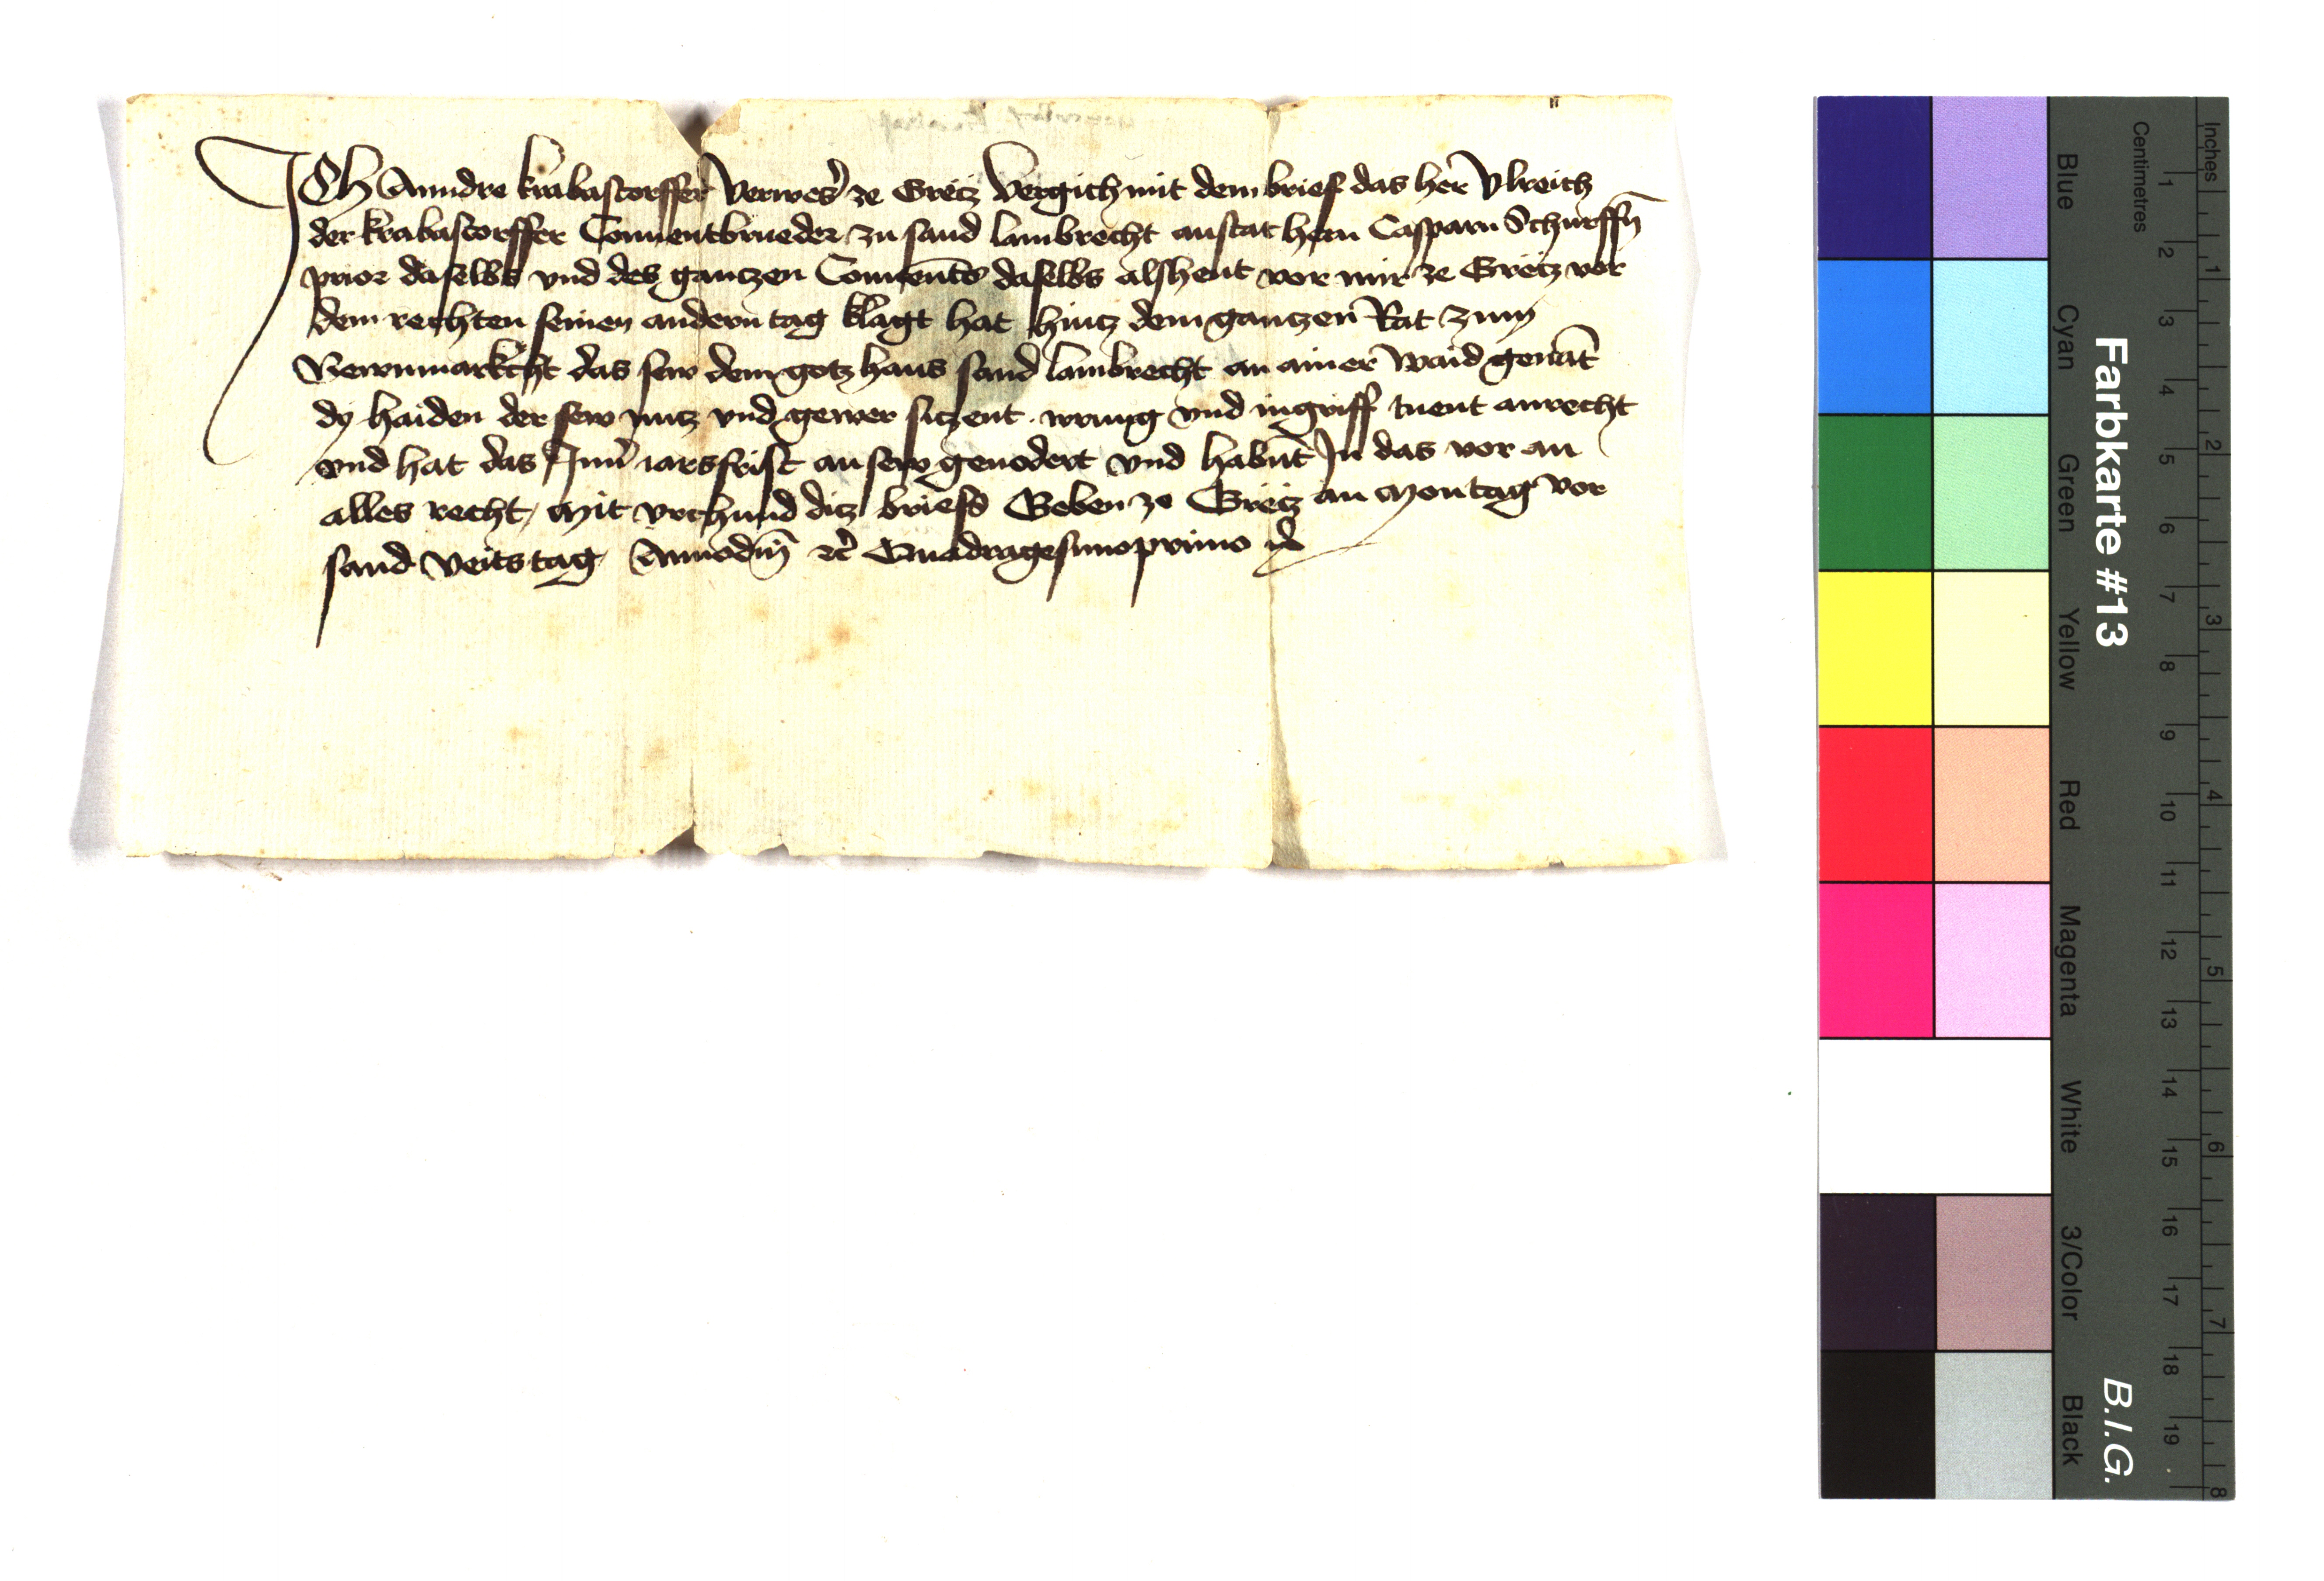 Ich Anndre krabastorffer Verweser ze Gretz Vergich mit dem brief das her Vlreich
der krabastorffer Conuentbrueder zu sand lambrecht anstat hern Casparn Schurffn̄
prior daselbs vnd des gantzen Conuents daselbs als heut vor mir ze Gretz vor
dem rechten seinen andern tag klagt hat hintz dem gantzen Rat zum
Newnmarkcht das sew dem gotzhaus sand lambrecht an ainer waid genāt
dy haiden der sew nutz vnd gewer sitzent irrung vnd ingriff tuent an recht
vnd hat das Inn jarsfrist an sew geuodert vnd habnt In das vor an
alles recht, Mit vrchund ditz briefs Geben ze Gretz an Montag vor
sand Veits tag, Anno dm̄ etc Quadragesimoprimo
Farbkarte #13
B.I.G.
Inches
Centimetres
1 2 3 4 5 6 7 8 9 10 11 12 13 14 15 16 17 18 19
1 2 3 4 5 6 7 8
Blue
Cyan
Green
Yellow
Red
Magenta
White
3/Color
Black